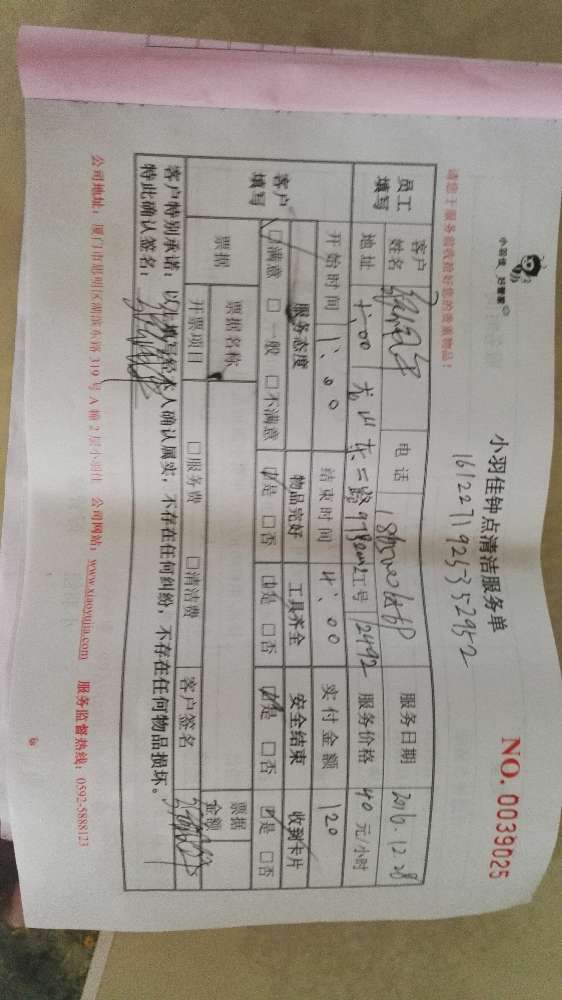 小羽佳 好管家
小羽佳钟点清洁服务单
NO. 0039025
16122711925352952
请您于服务前收捡好您的贵重物品!
员工填写
客户姓名 电话 服务日期 2016.12.28
地址 龙山东二路 工号 2492 服务价格 40 元/小时
开始时间 1:00 结束时间 4:00 实付金额 120
客户填写
服务态度 物品完好 工具齐全 安全结束 收到卡片
☑满意 □一般 □不满意 ☑是 □否 ☑是 □否 ☑是 □否 ☑是 □否
票据 票据名称 票据金额
开票项目 □服务费 □清洁费 客户签名
客户特别承诺:以上填写经本人确认属实,不存在任何纠纷,不存在任何物品损坏。
特此确认签名:
公司地址:厦门市思明区湖滨东路 319 号 A 幢 2 层小羽佳 公司网站:www.xiaoyujia.com 服务监督热线:0592-5888123